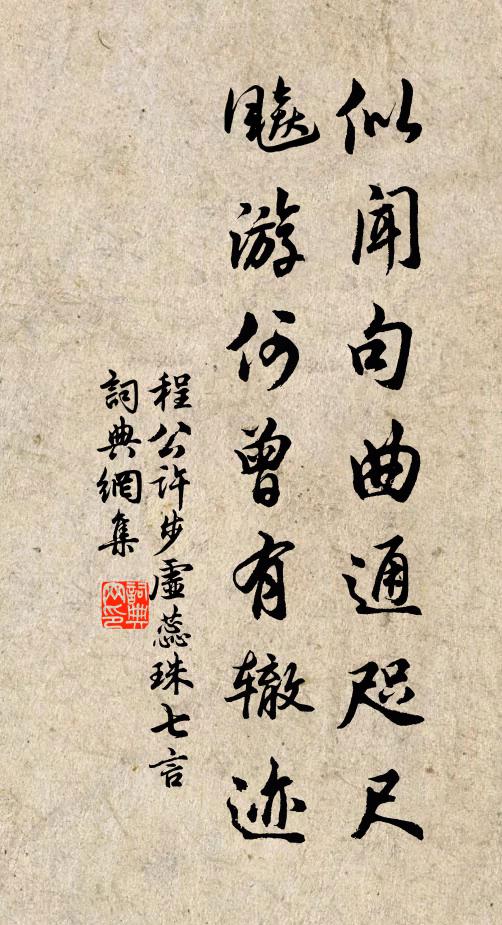 似闻句曲通咫尺
飚游何曾有辙迹
程公许步虚蕊珠七言
詞典網集
詞典网印